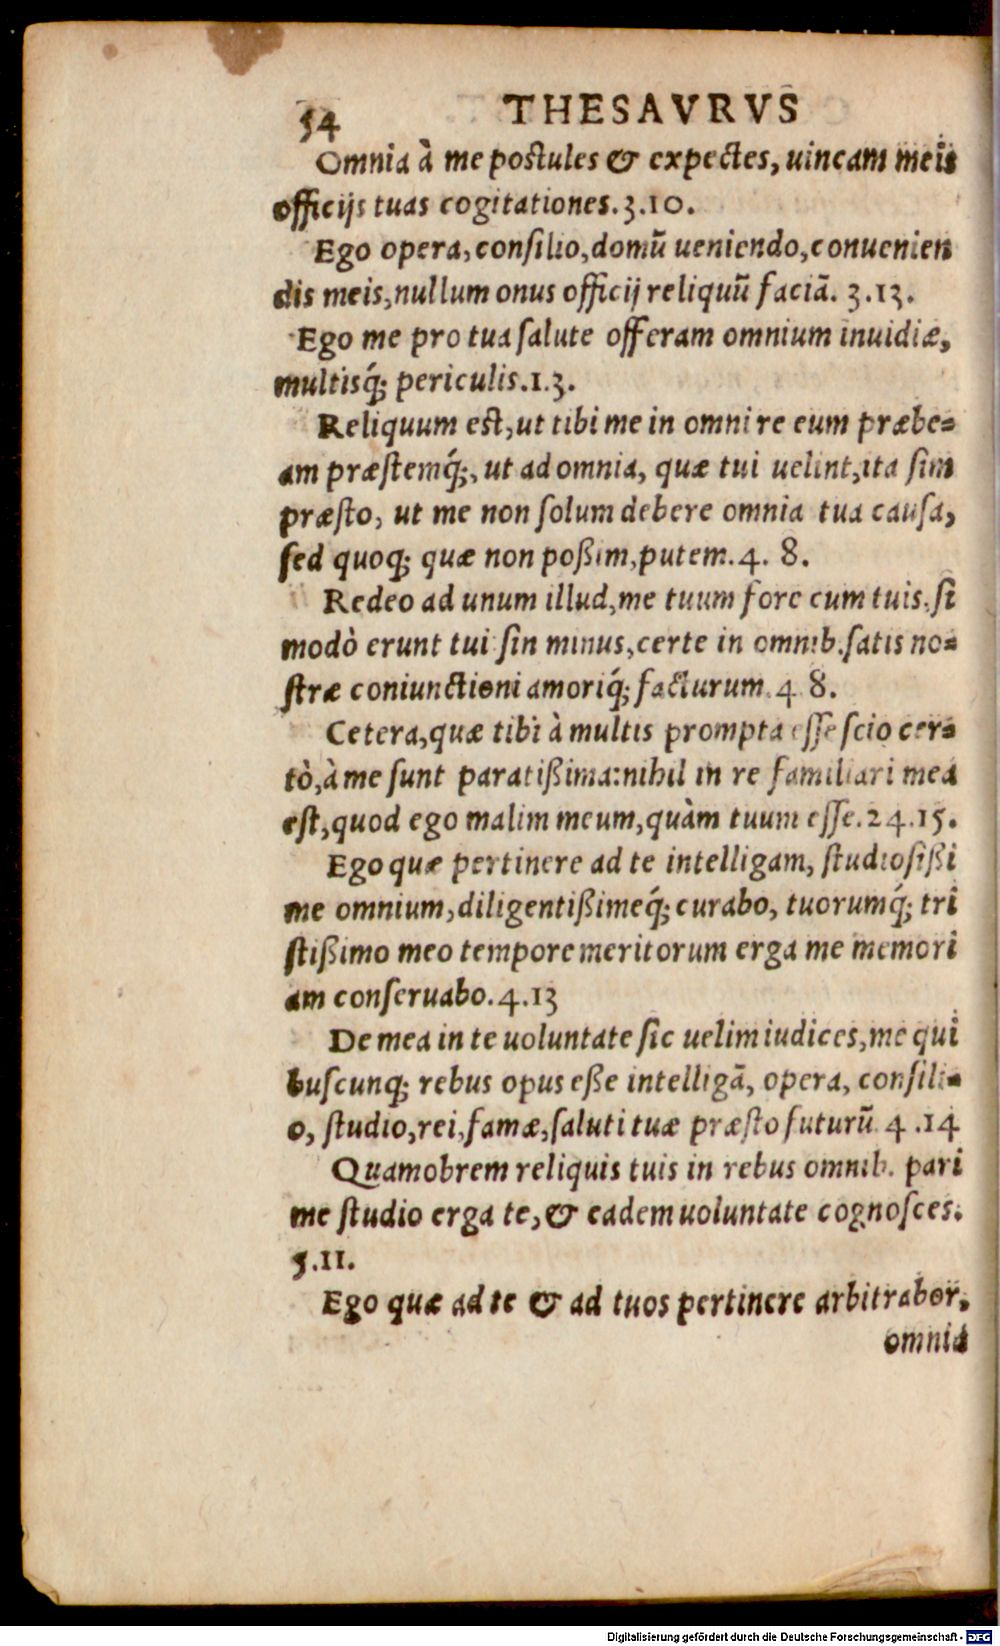 54 THESAVRVS
Omnia à me postules & expectes, uincam meis
officijs tuas cogitationes. 3.10.
Ego opera, consilio, domũ ueniendo, conuenien
dis meis, nullum onus officij reliquũ faciã. 3.13.
Ego me pro tua salute offeram omnium inuidiæ,
multisq́; periculis. 1.3.
Reliquum est, ut tibi me in omni re eum præbe=
am præstemq́;, ut ad omnia, quæ tui uelint, ita sim
præsto, ut me non solum debere omnia tua causa,
sed quoq; quæ non poßim, putem. 4. 8.
Redeo ad unum illud, me tuum fore cum tuis, si
modò erunt tui: sin minus, certe in omnib. satis no=
stræ coniunctioni amoriq́; facturum. 4 8.
Cetera, quæ tibi à multis prompta esse scio cer=
tò, à me sunt paratißima: nihil in re familiari mea
est, quod ego malim meum, quàm tuum esse. 24.15.
Ego quæ pertinere ad te intelligam, studiosißi
me omnium, diligentißimeq́; curabo, tuorumq́; tri
stißimo meo tempore meritorum erga me memori
am conseruabo. 4.13
De mea in te uoluntate sic uelim iudices, me qui
buscunq; rebus opus eße intelligã, opera, consili=
o, studio, rei, famæ, saluti tuæ præsto futurũ 4 .14
Quamobrem reliquis tuis in rebus omnib. pari
me studio erga te, & eadem uoluntate cognosces.
5.11.
Ego quæ ad te & ad tuos pertinere arbitrabor,
omnia
Digitalisierung gefördert durch die Deutsche Forschungsgemeinschaft - DFG